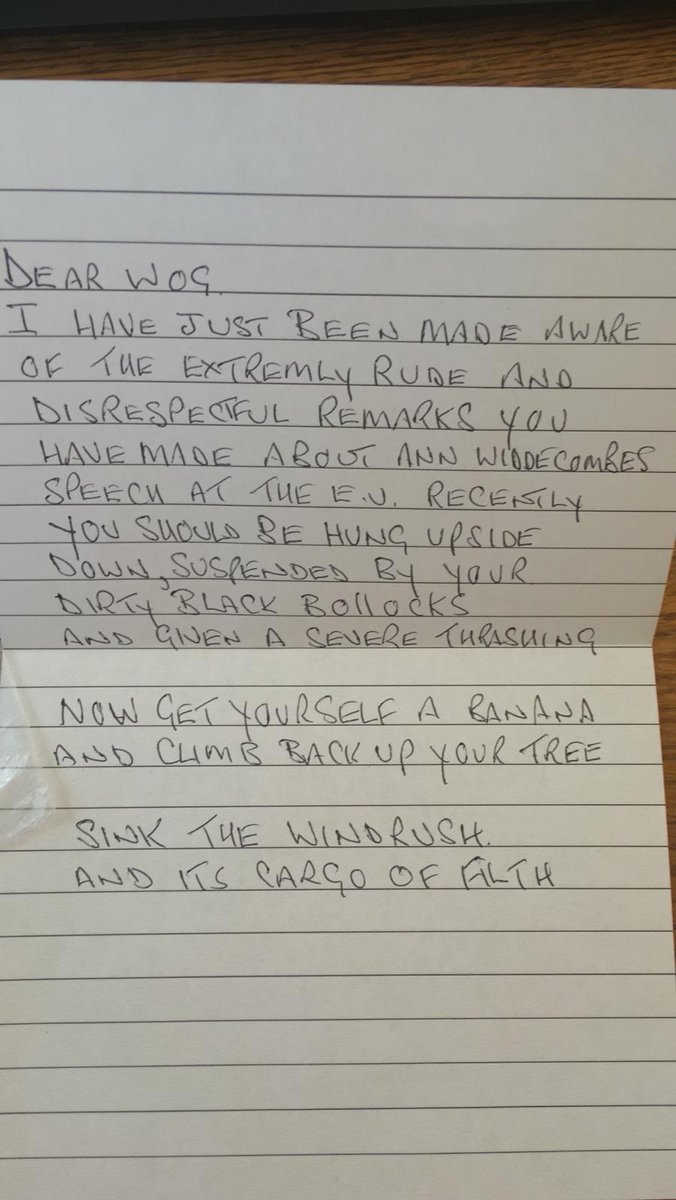 DEAR WOG.
I HAVE JUST BEEN MADE AWARE
OF THE EXTREMLY RUDE AND
DISRESPECTFUL REMARKS YOU
HAVE MADE ABOUT ANN WIDDECOMBES
SPEECH AT THE E.U. RECENTLY
YOU SHOULD BE HUNG UPSIDE
DOWN, SUSPENDED BY YOUR
DIRTY BLACK BOLLOCKS
AND GIVEN A SEVERE THRASHING
NOW GET YOURSELF A BANANA
AND CLIMB BACK UP YOUR TREE
SINK THE WINDRUSH.
AND ITS CARGO OF FILTH